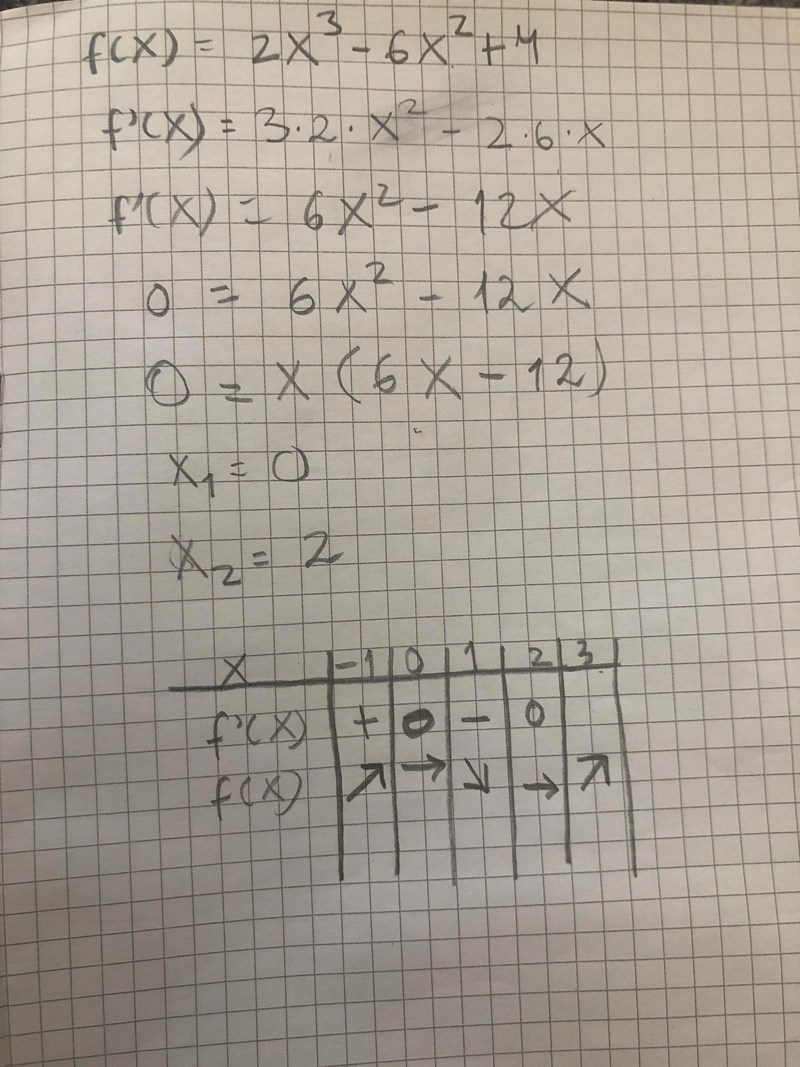 f(x) = 2x³ - 6x² + 4
f'(x) = 3·2·x² - 2·6·x
f'(x) = 6x² - 12x
0 = 6x² - 12x
0 = x (6x - 12)
x₁ = 0
x₂ = 2
x | -1 | 0 | 1 | 2 | 3 |
f'(x) | + | 0 | - | 0 | |
f(x) | ↗ | → | ↘ | → | ↗ |